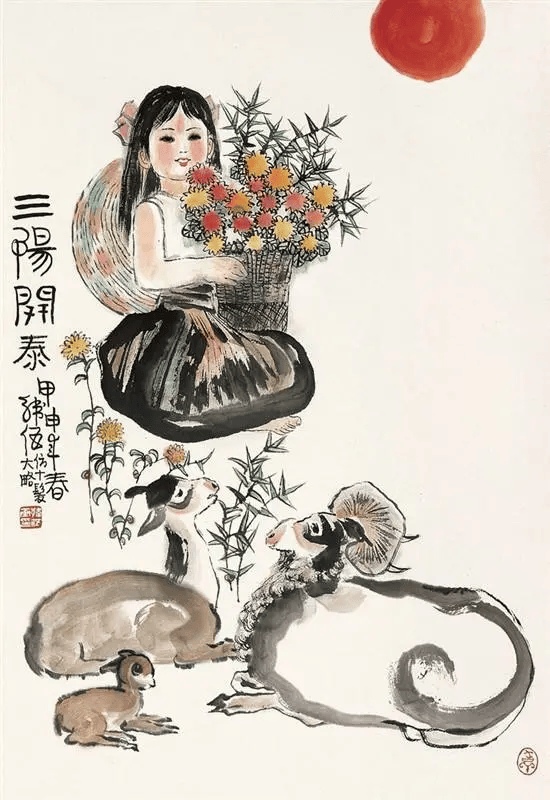 三陽開泰
甲申年春
仿十髮
大略